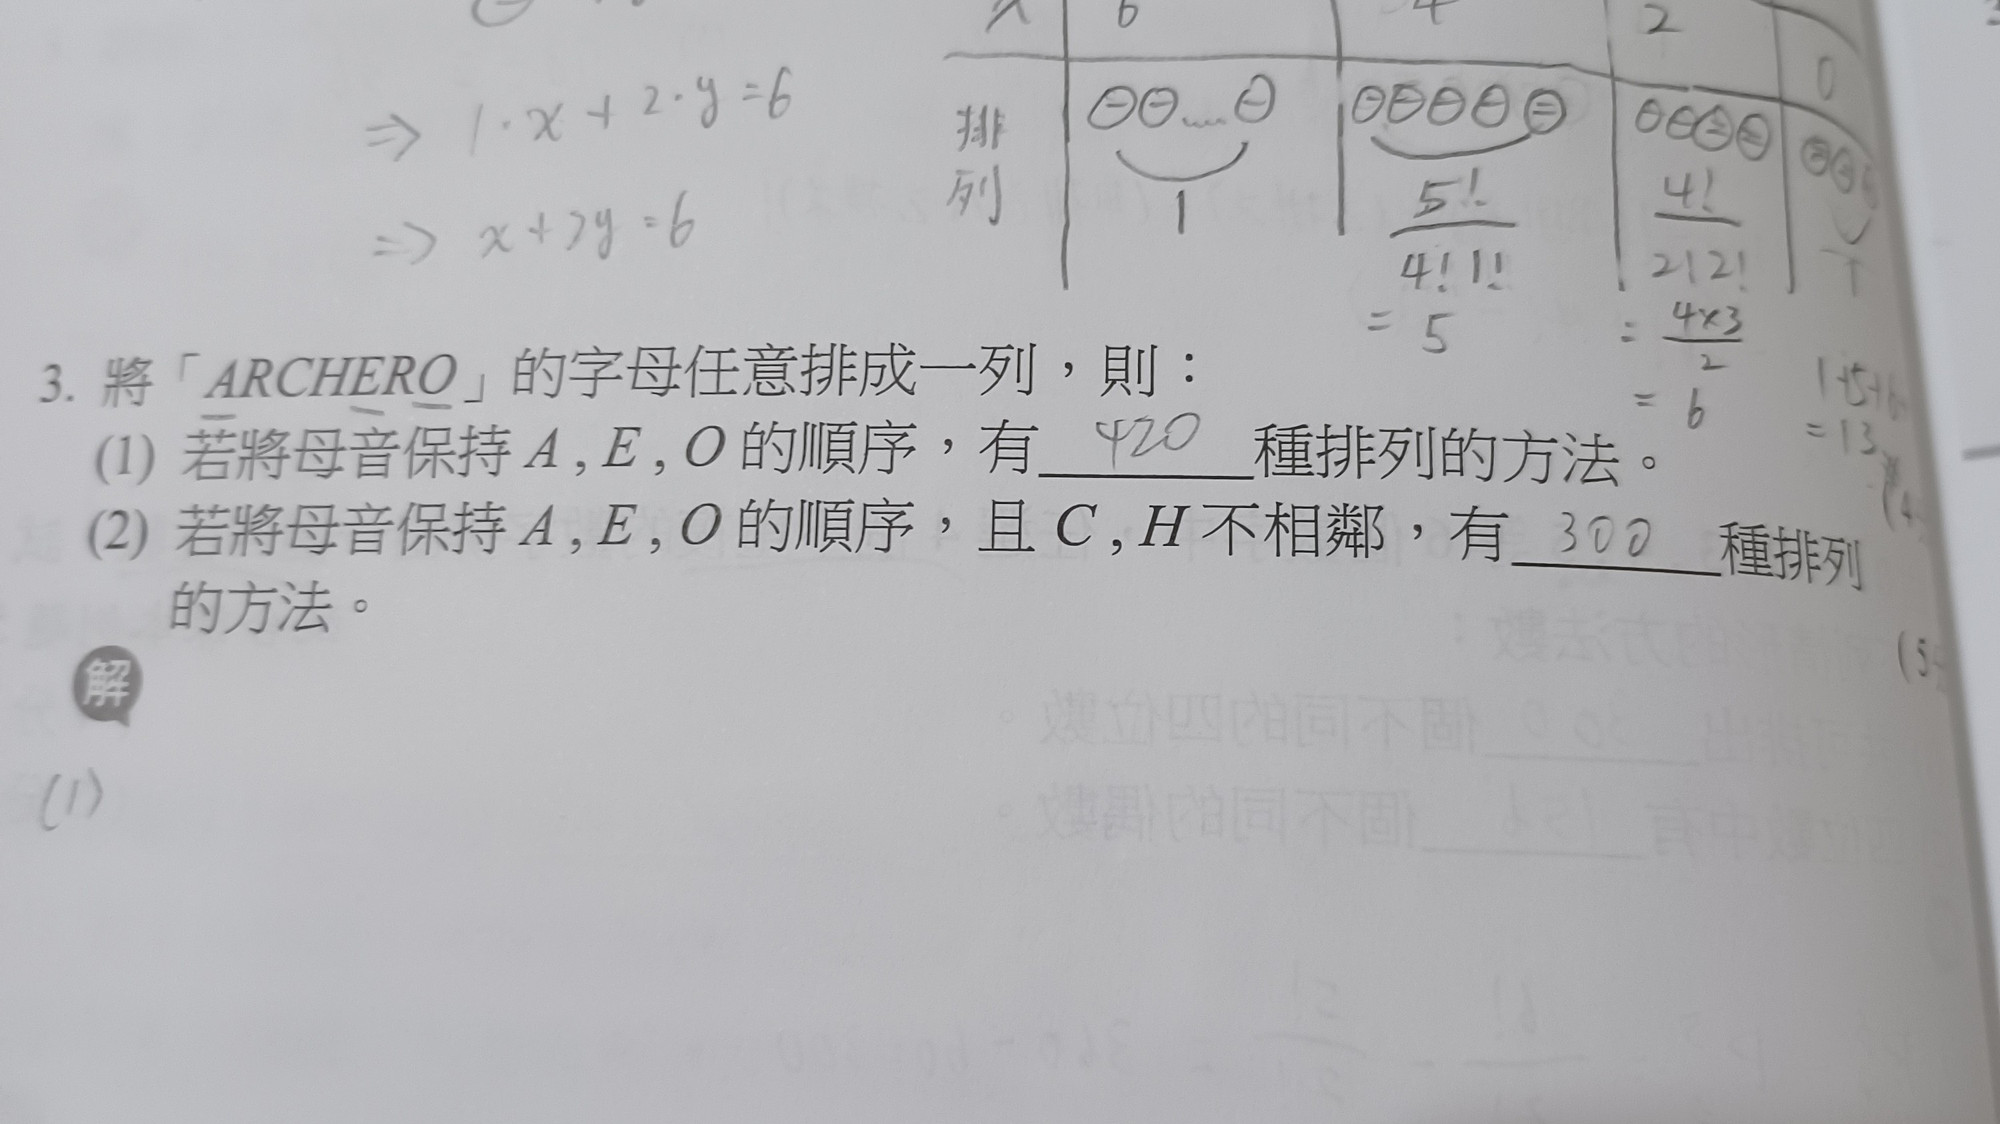 x 6 4 2 0
⇒ 1·x+2·y=6
排列 1 5!/4!1! 4!/2!2! 1
⇒ x+2y=6
= 5 = 4×3/2
= 6
1+5+6
=13
3. 將「ARCHERO」的字母任意排成一列，則：
(1) 若將母音保持 A , E , O 的順序，有 420 種排列的方法。
(2) 若將母音保持 A , E , O 的順序，且 C , H 不相鄰，有 300 種排列
的方法。
解
(1)